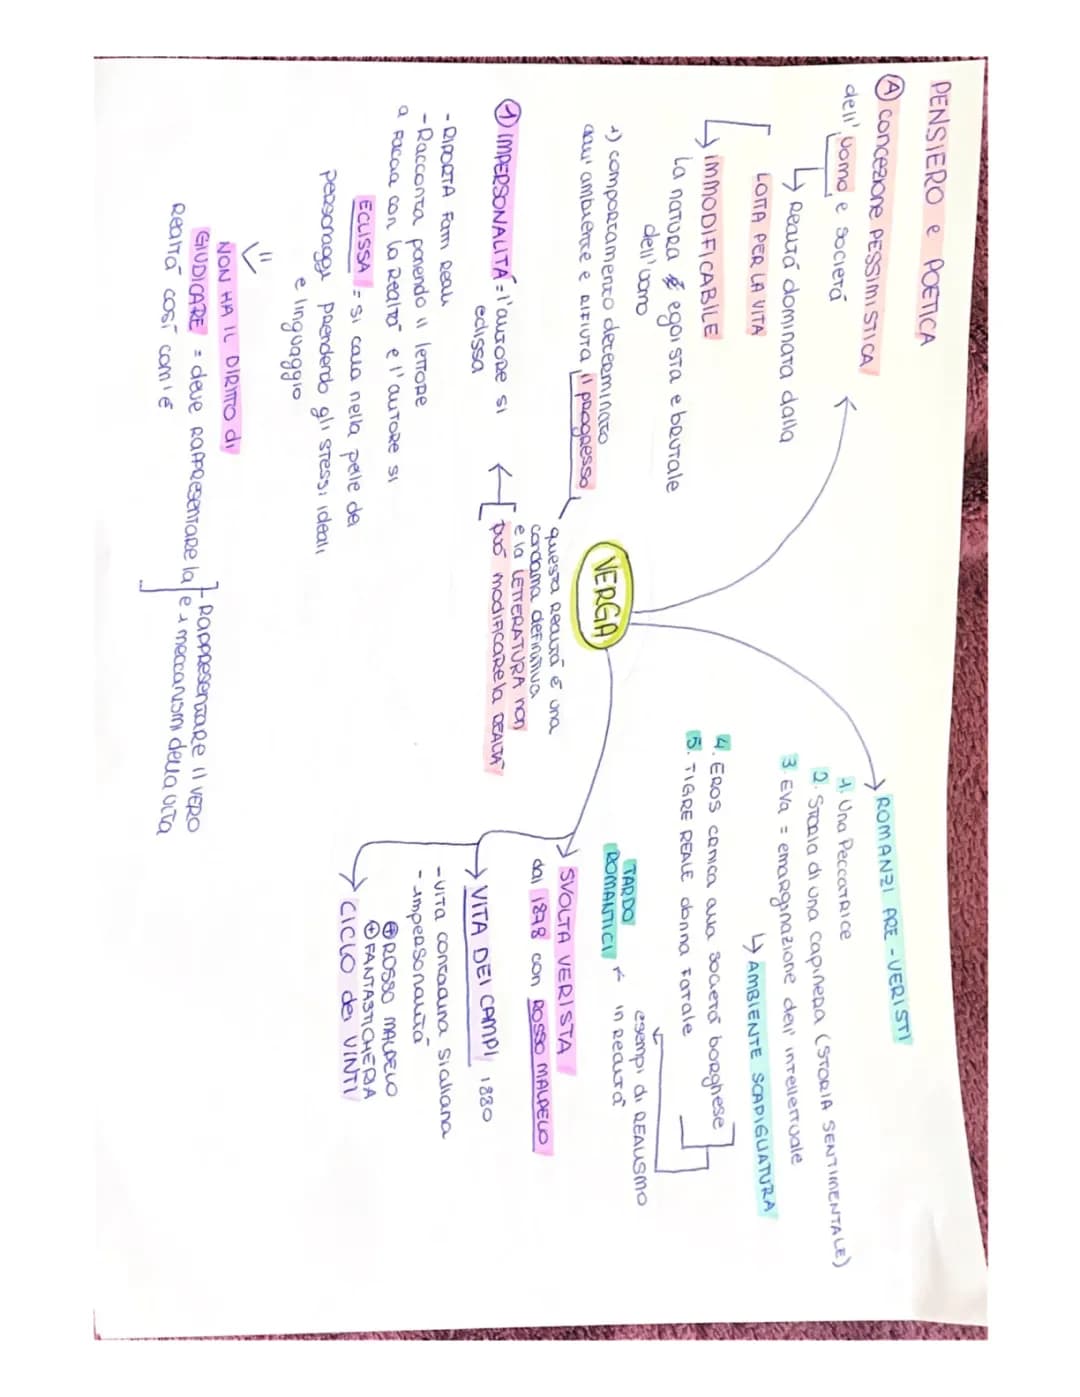 PENSIERO e POETICA
A CONCEZIONE PESSIMISTICA
dell' uomo e società
↳ Realtà dominata dalla
LOTTA PER LA VITA
↳ IMMODIFICABILE
La natura è egoista e brutale
dell'uomo
1) comportamento determinato
dall'ambiente e rifiuta il progresso
questa realtà è una
condanna definitiva
e la LETTERATURA non
può modificare la REALTÀ
1 IMPERSONALITÀ = l'autore si
eclissa
- RIPORTA Fatti Reali
- Racconta ponendo il lettore
a faccia con la Realtà e l'autore si
ECLISSA = si cala nella pelle dei
personaggi prendendo gli stessi ideali
e linguaggio
NON HA IL DIRITTO di
GIUDICARE = deve RAPPRESENTARE la
Realtà così com'è
- RAPPRESENTARE il VERO
e i meccanismi della vita
VERGA
ROMANZI PRE-VERISTI
1. Una Peccatrice
2. STORIA di una capinera (STORIA SENTIMENTALE)
3. EVA = emarginazione dell'intellettuale
↳ AMBIENTE SCAPIGLIATURA
4. EROS critica alla società borghese
5. TIGRE REALE donna Fatale
esempi di REALISMO
in Realtà
TARDO
ROMANTICI
SVOLTA VERISTA
dal 1878 con ROSSO MALPELO
VITA DEI CAMPI 1880
- vita contadina siciliana
- impersonalità
⊕ ROSSO MALPELO
⊕ FANTASTICHERIA
CICLO dei VINTI